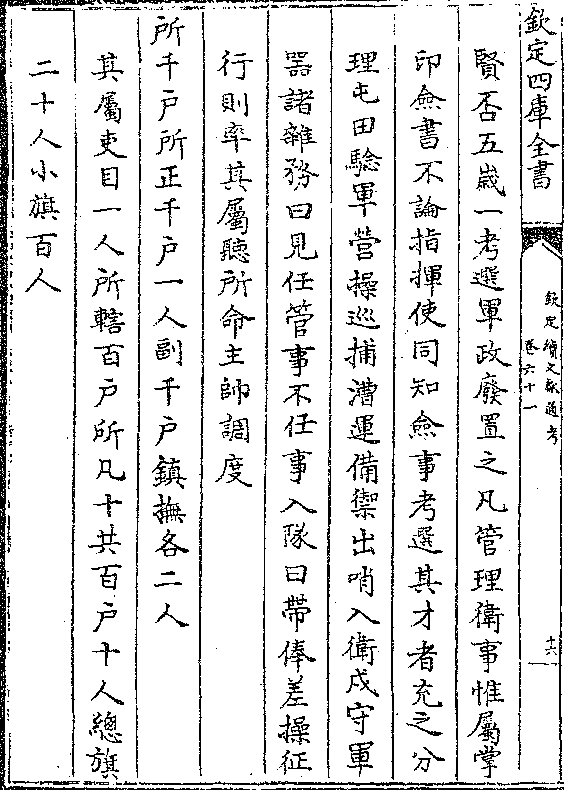 欽定四庫全書
欽定續文獻通考
卷六十一
十六
賢否五歲一考選軍政廢置之凡管理衛事惟屬掌
印僉書不論指揮使同知僉事考選其才者充之分
理屯田驗軍營操巡捕漕運備禦出哨入衛戍守軍
器諸雜務曰見任管事不任事入隊曰帶俸差操征
行則率其屬聽所命主帥調度
所千戶所正千戶一人副千戶鎮撫各二人
其屬吏目一人所轄百戶所凡十共百戶十人總旗
二十人小旗百人